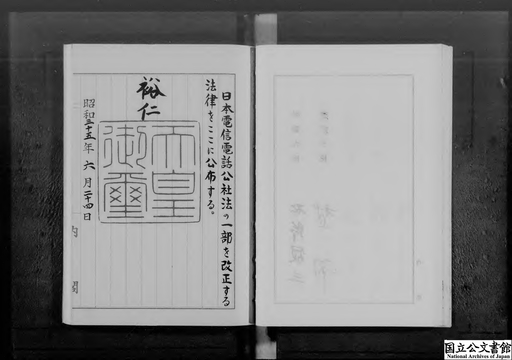 日本電信電話公社法の一部を改正する
法律をここに公布する。
裕仁
天皇
御璽
昭和三十五年六月二十四日
内閣
国立公文書館
National Archives of Japan